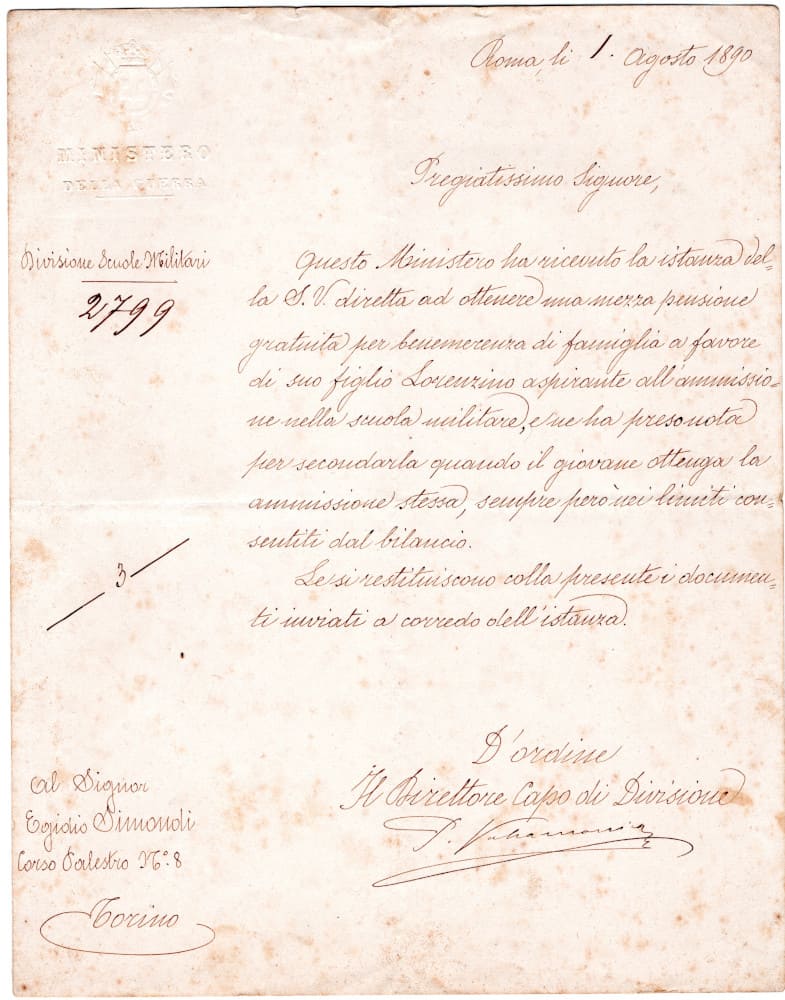 Roma, li 1. Agosto 1890
MINISTERO
DELLA GUERRA
Pregiatissimo Signore,
Divisione Scuole Militari
2799
Questo Ministero ha ricevuto la istanza del-
la S. V. diretta ad ottenere una mezza pensione
gratuita per benemerenza di famiglia a favore
di suo figlio Lorenzino aspirante all'ammissio-
ne nella scuola militare, e ne ha preso nota
per secondarla quando il giovane ottenga la
ammissione stessa, sempre però nei limiti con-
sentiti dal bilancio.
Le si restituiscono colla presente i documen-
ti inviati a corredo dell'istanza.
3
D'ordine
Il Direttore Capo di Divisione
Al Signor
Egidio Simondi
Corso Palestro N.º 8
Torino